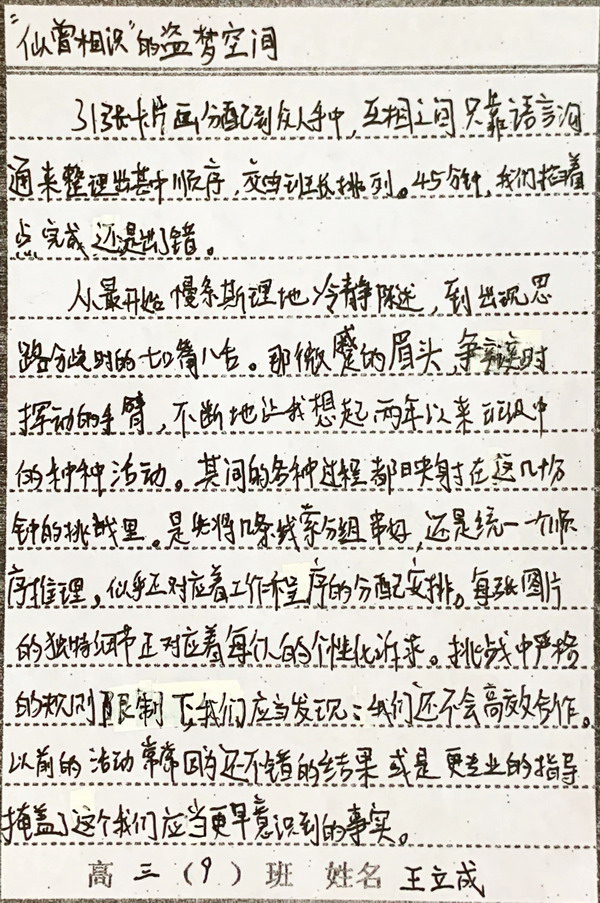 “似曾相识”的盗梦空间
31张卡片画分配到众人手中，互相之间只靠语言沟
通来整理出其中顺序，交由班长排列。45分钟，我们掐着
点完成还是出了错。
从最开始慢条斯理地冷静陈述，到出现思
路分歧时的七嘴八舌。那微蹙的眉头，争辩时
挥动的手臂，不断地让我想起两年以来班级中
的种种活动。其间的各种过程都映射在这几十分
钟的挑战里。是先将几条线索分组串好，还是统一大顺
序推理，似乎正对应着工作程序的分配安排。每张图片
的独特细节正对应着每个人的个性化诉求。挑战中严格
的规则限制下，我们应当发现：我们还不会高效合作。
以前的活动常常因为还不错的结果或是更专业的指导
掩盖了这个我们应当更早意识到的事实。
高三（9）班 姓名 王立成